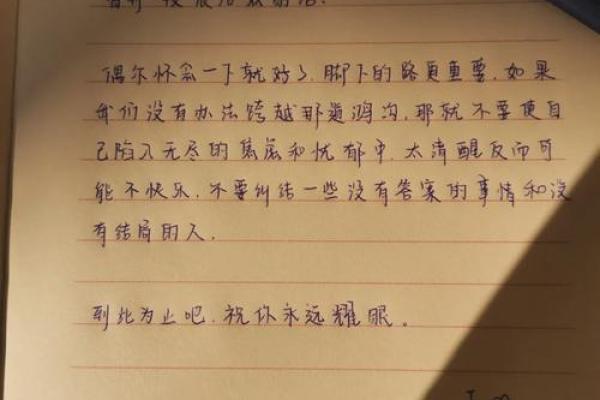 偶尔怀念一下就好了,脚下的路更重要,如果
我们没有办法跨越那道鸿沟,那就不要使自
己陷入无尽的焦虑和忧郁中,太清醒反而可
能不快乐,不要纠结一些没有答案的事情和没
有结局的人.
到此为止吧,祝你永远耀眼。